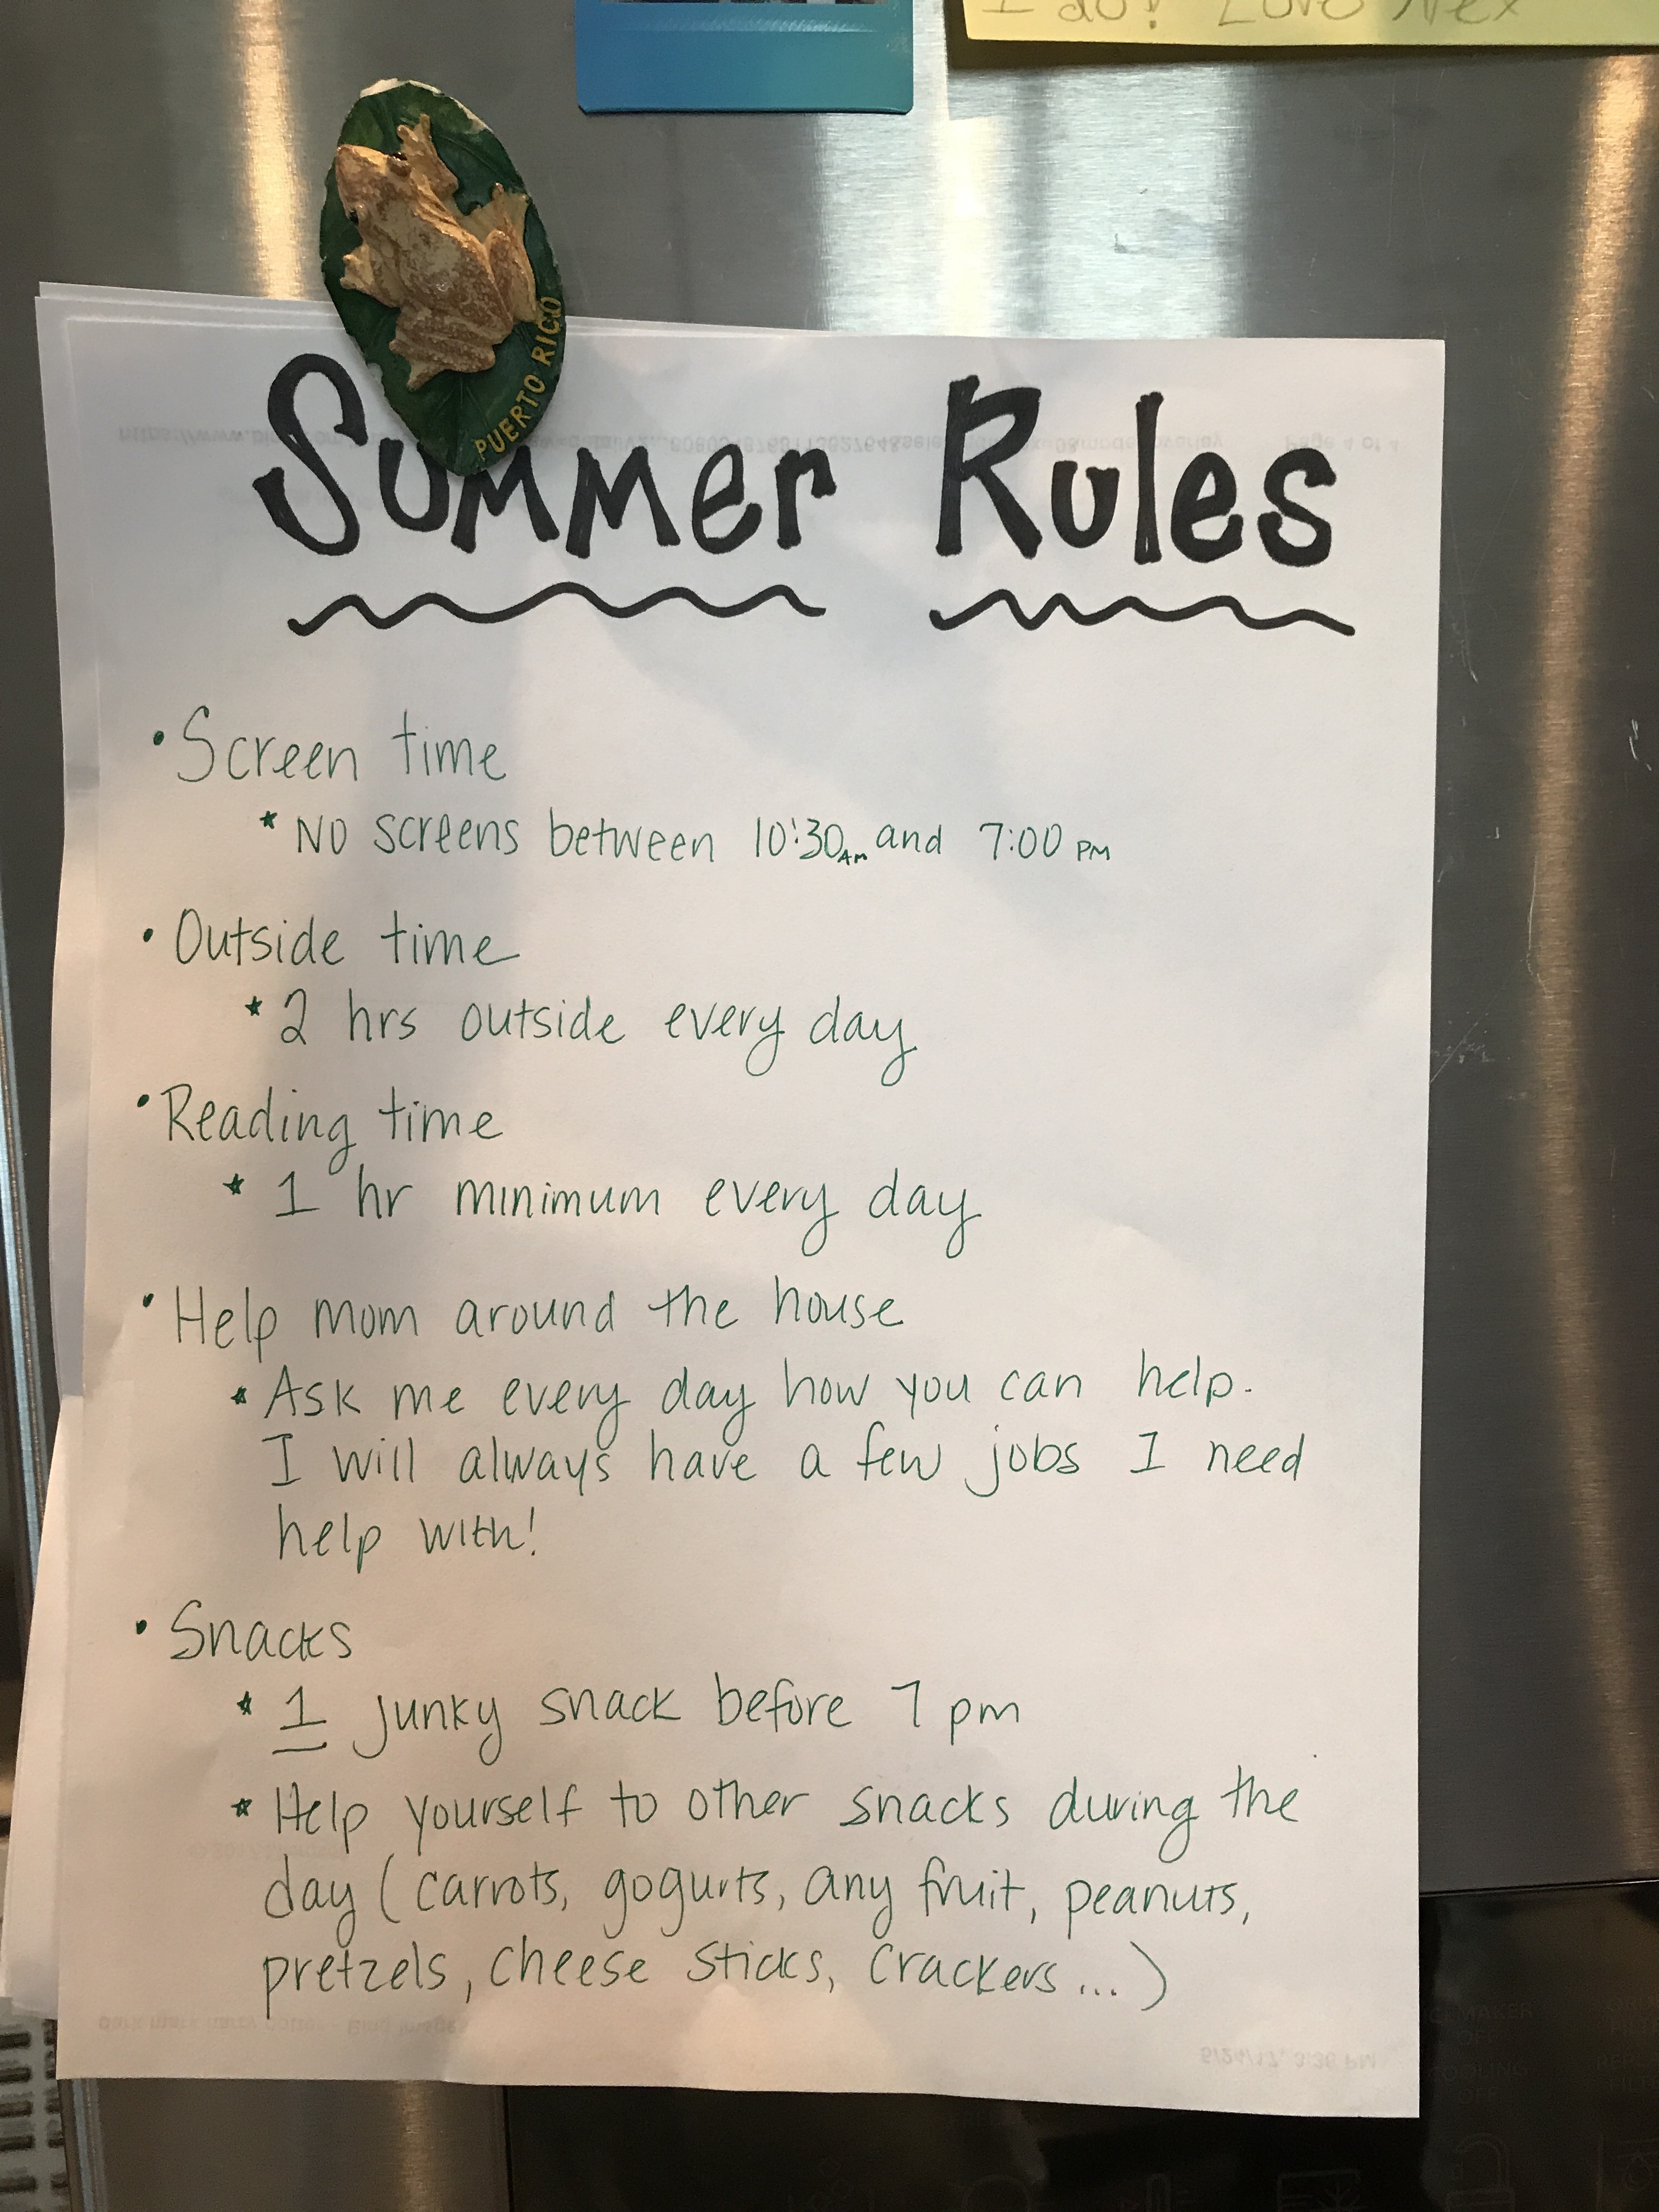 I do! Love
PUERTO RICO
Summer Rules
• Screen time
* No screens between 10:30 AM and 7:00 PM
• Outside time
* 2 hrs outside every day
• Reading time
* 1 hr minimum every day
• Help mom around the house
* Ask me every day how you can help.
I will always have a few jobs I need
help with!
• Snacks
* 1 junky snack before 7 pm
* Help yourself to other snacks during the
day (carrots, gogurts, any fruit, peanuts,
pretzels, cheese sticks, crackers...)
Page 4 of 4
5/24/17, 3:36 PM